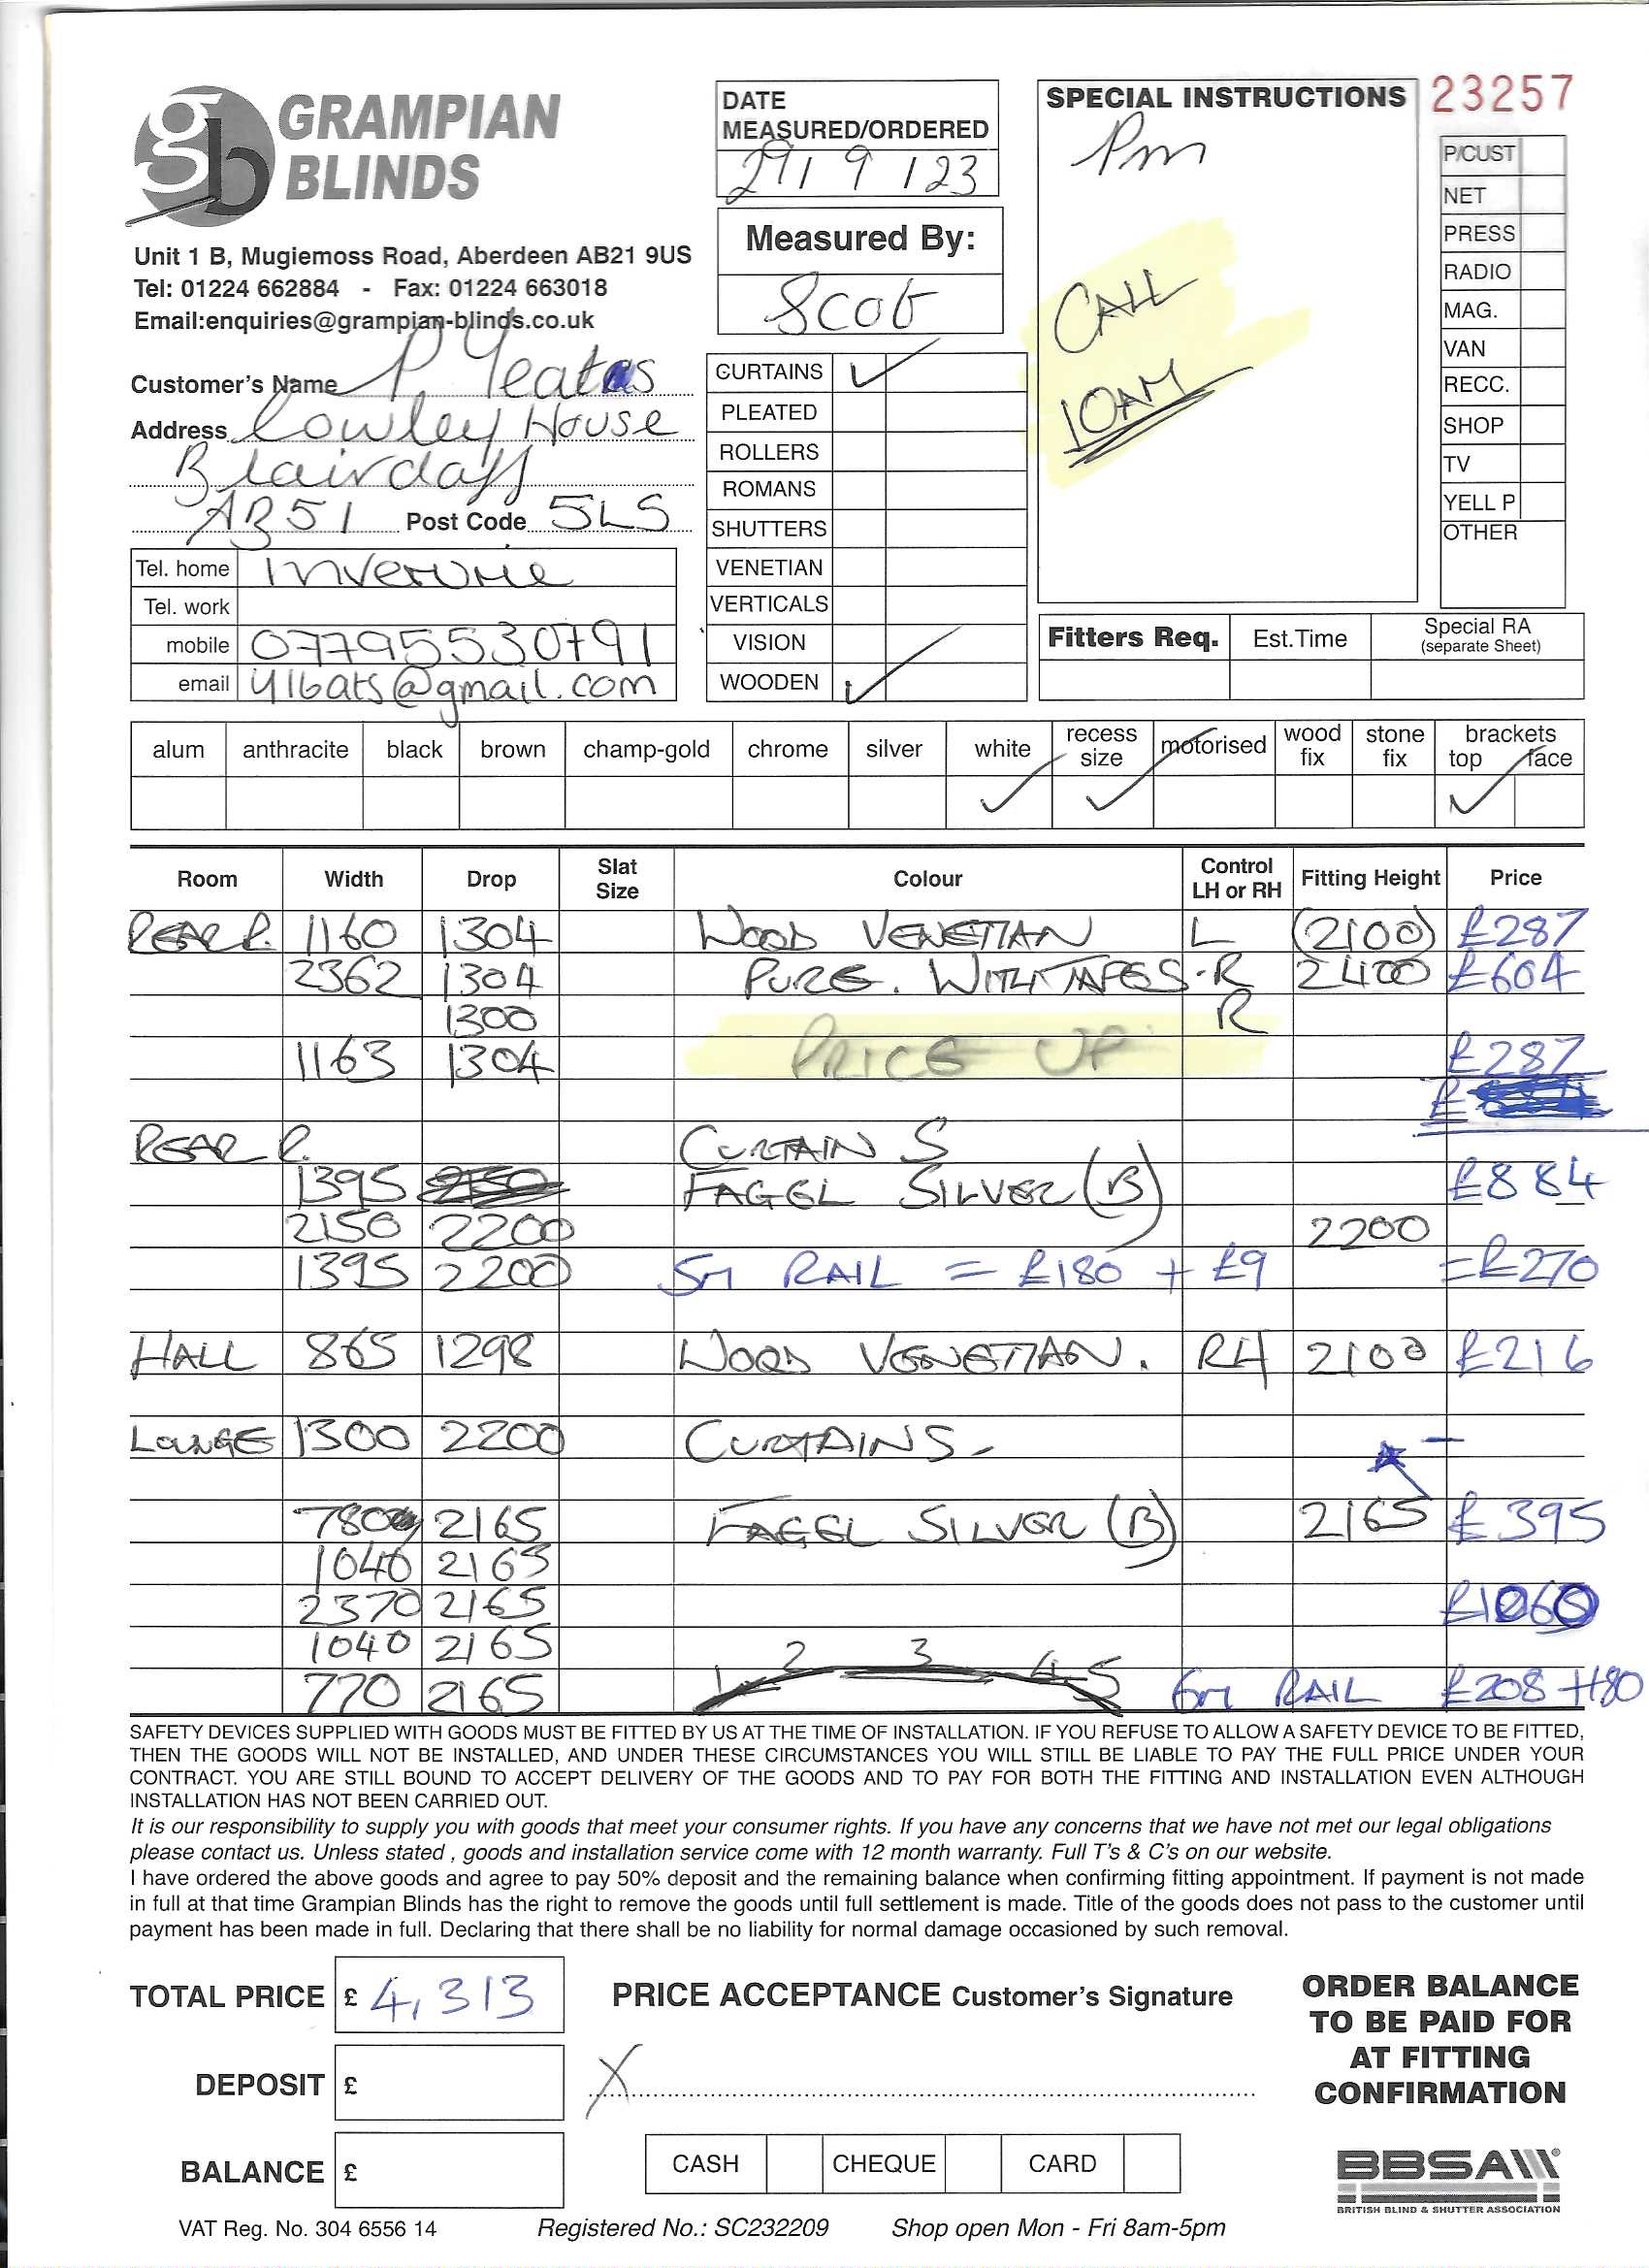 gb GRAMPIAN BLINDS
Unit 1 B, Mugiemoss Road, Aberdeen AB21 9US
Tel: 01224 662884 - Fax: 01224 663018
Email:enquiries@grampian-blinds.co.uk
Customer's Name P Yeatas
Address Cowley House
Blairdaff
AB51 Post Code 5LS
Tel. home Inverurie
Tel. work
mobile 07795530791
email y16ats@gmail.com
DATE MEASURED/ORDERED
29/ 9 / 23
Measured By:
Scot
CURTAINS ✓
PLEATED
ROLLERS
ROMANS
SHUTTERS
VENETIAN
VERTICALS
VISION
WOODEN ✓
SPECIAL INSTRUCTIONS
Pm
CALL
10AM
23257
P/CUST
NET
PRESS
RADIO
MAG.
VAN
RECC.
SHOP
TV
YELL P
OTHER
Fitters Req. Est.Time Special RA (separate Sheet)
alum anthracite black brown champ-gold chrome silver white recess size motorised wood fix stone fix brackets top face
✓ ✓ ✓
Room Width Drop Slat Size Colour Control LH or RH Fitting Height Price
REAR R. 1160 1304 WOOD VENETIAN L (2100) £287
2362 1304 PURE. WITH TAPES - R 2400 £604
1300 R
1163 1304 PRICE UP £287
£
REAR R. CURTAIN S
1395 FAGEL SILVER (B) £884
2150 2200 2200
1395 2200 5M RAIL = £180 + £9 =£270
HALL 865 1298 WOOD VENETIAN. RH 2100 £216
LOUNGE 1300 2200 CURTAINS -
780 2165 FAGEL SILVER (B) 2165 £395
1040 2165
2370 2165 £1060
1040 2165
770 2165 1 2 3 4 5 6M RAIL £208 +180
SAFETY DEVICES SUPPLIED WITH GOODS MUST BE FITTED BY US AT THE TIME OF INSTALLATION. IF YOU REFUSE TO ALLOW A SAFETY DEVICE TO BE FITTED,
THEN THE GOODS WILL NOT BE INSTALLED, AND UNDER THESE CIRCUMSTANCES YOU WILL STILL BE LIABLE TO PAY THE FULL PRICE UNDER YOUR
CONTRACT. YOU ARE STILL BOUND TO ACCEPT DELIVERY OF THE GOODS AND TO PAY FOR BOTH THE FITTING AND INSTALLATION EVEN ALTHOUGH
INSTALLATION HAS NOT BEEN CARRIED OUT.
It is our responsibility to supply you with goods that meet your consumer rights. If you have any concerns that we have not met our legal obligations
please contact us. Unless stated , goods and installation service come with 12 month warranty. Full T's & C's on our website.
I have ordered the above goods and agree to pay 50% deposit and the remaining balance when confirming fitting appointment. If payment is not made
in full at that time Grampian Blinds has the right to remove the goods until full settlement is made. Title of the goods does not pass to the customer until
payment has been made in full. Declaring that there shall be no liability for normal damage occasioned by such removal.
TOTAL PRICE £ 4,313
DEPOSIT £
BALANCE £
PRICE ACCEPTANCE Customer's Signature
X
CASH CHEQUE CARD
ORDER BALANCE
TO BE PAID FOR
AT FITTING
CONFIRMATION
BBSA
BRITISH BLIND & SHUTTER ASSOCIATION
VAT Reg. No. 304 6556 14 Registered No.: SC232209 Shop open Mon - Fri 8am-5pm